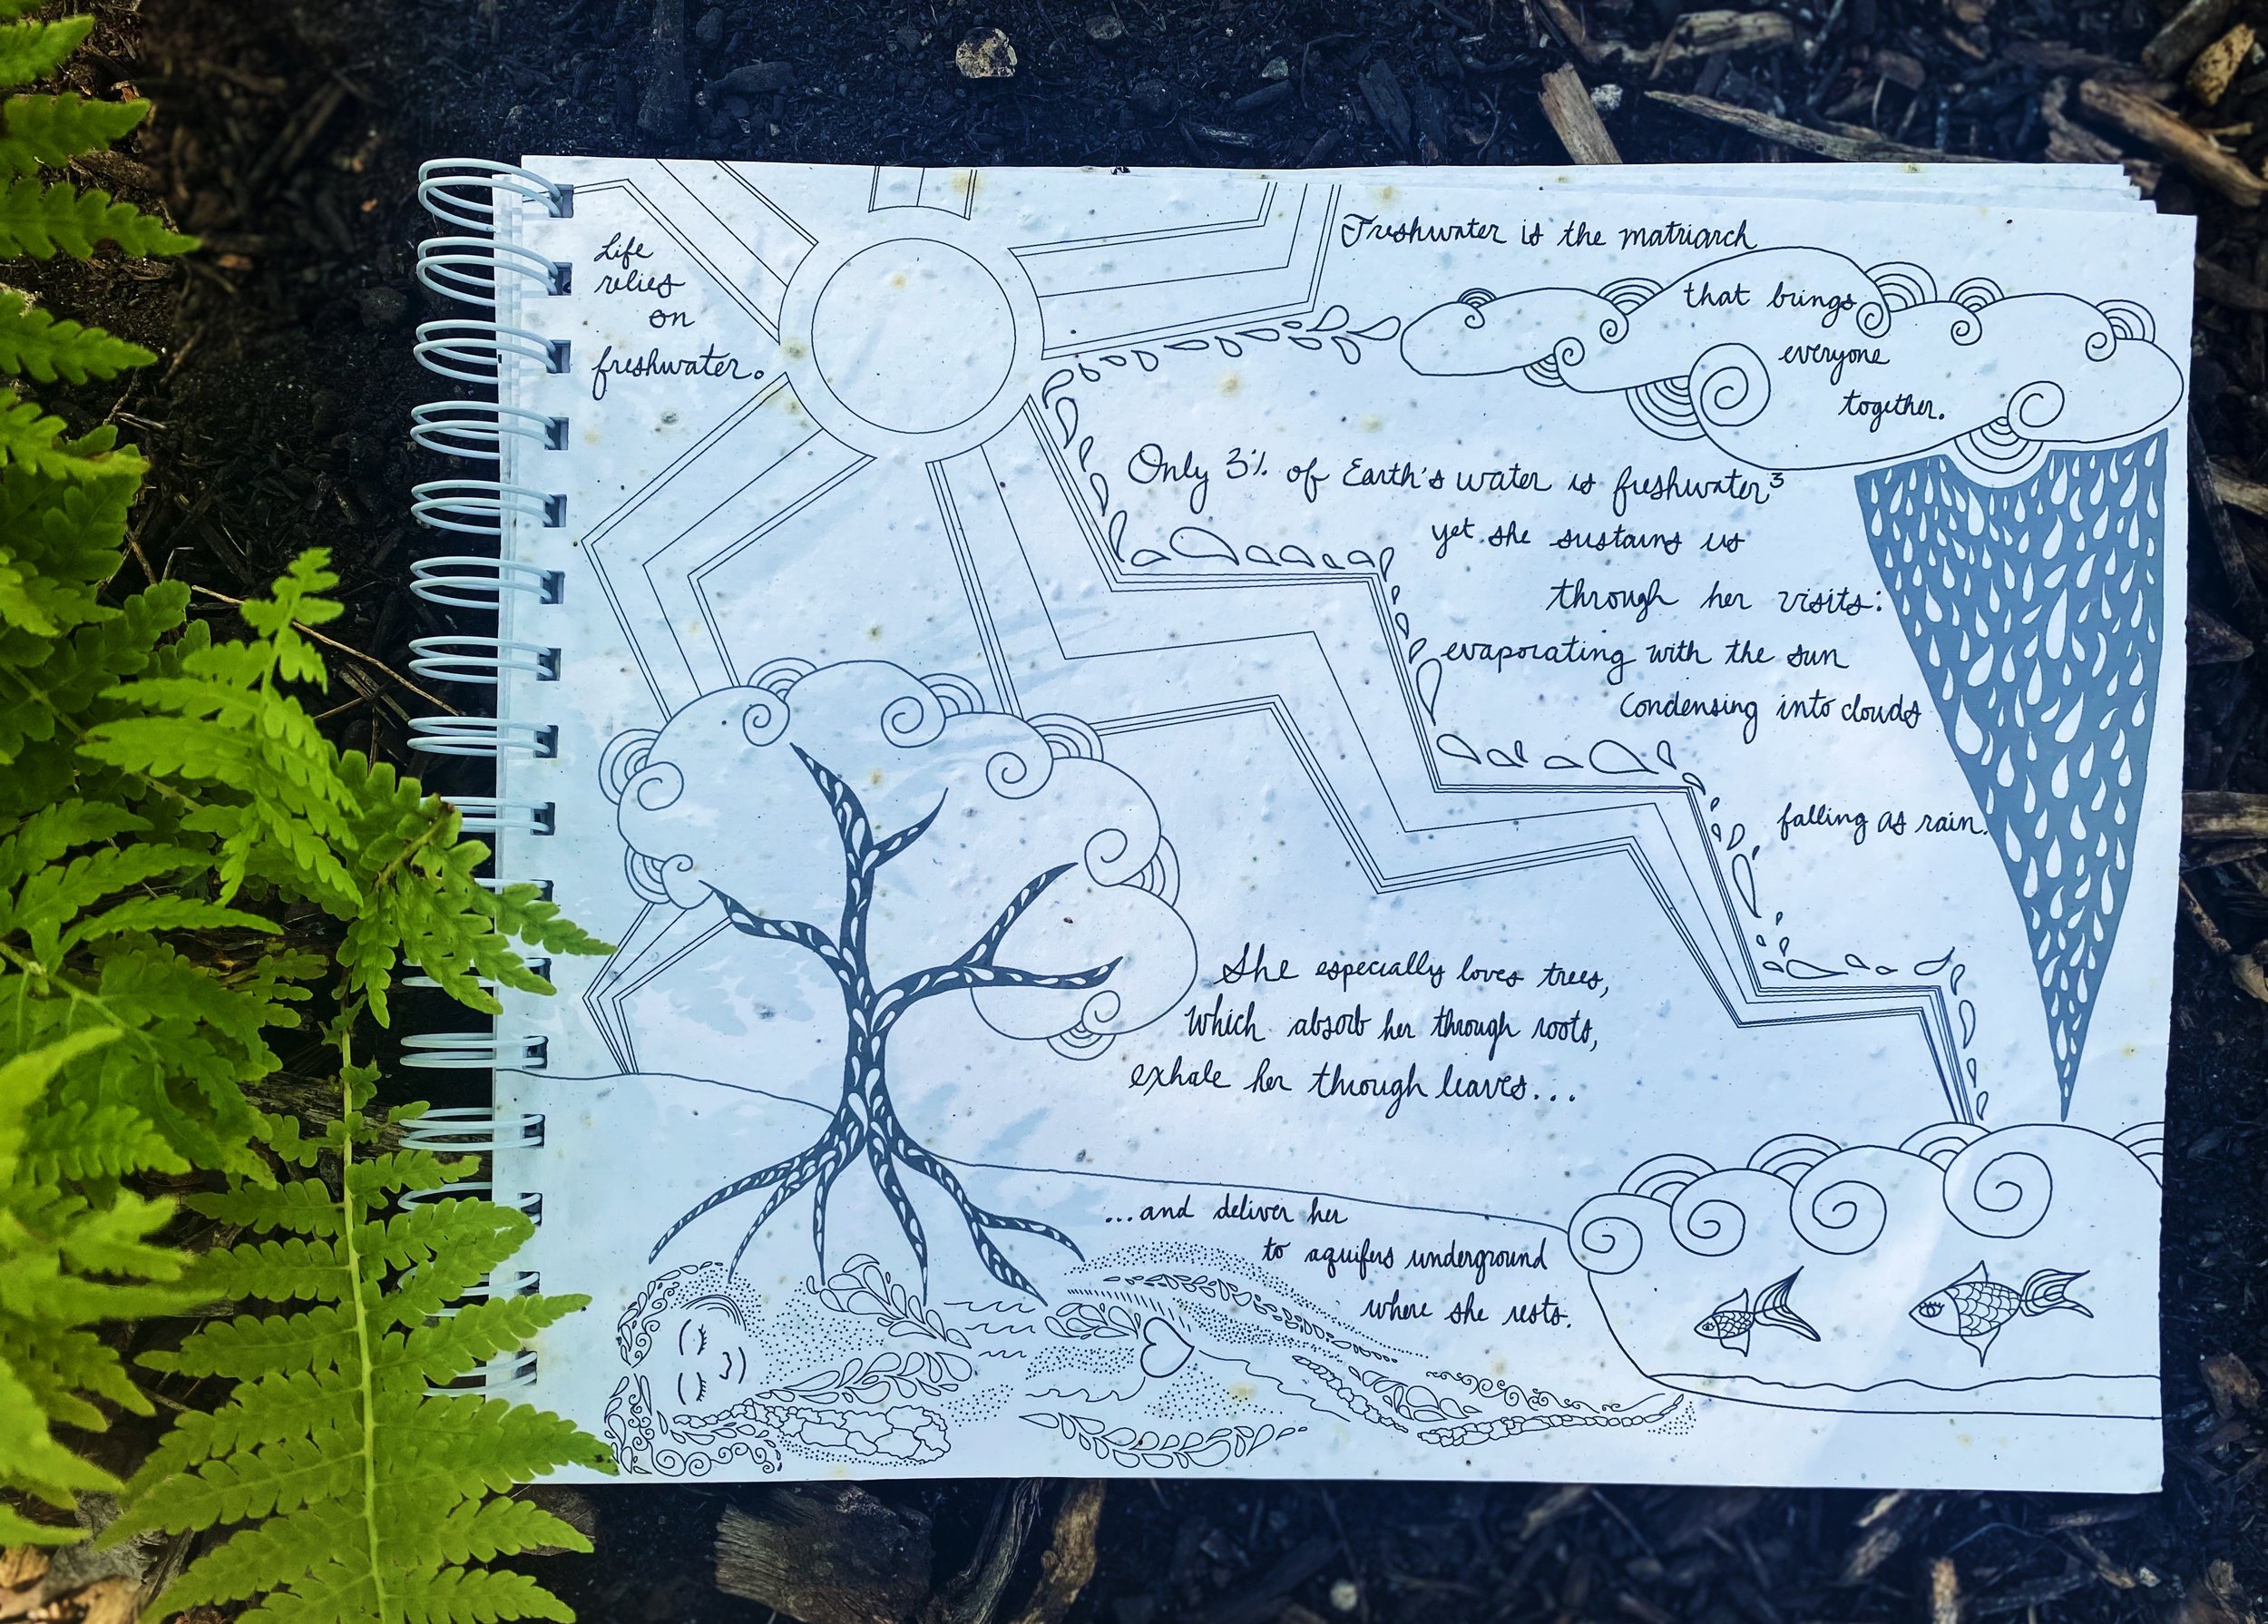 Life
relies
on
freshwater.
Freshwater is the matriarch
that brings
everyone
together.
Only 3% of Earth's water is freshwater³
yet she sustains us
through her visits:
evaporating with the sun
condensing into clouds
falling as rain.
She especially loves trees,
which absorb her through roots,
exhale her through leaves...
...and deliver her
to aquifers underground
where she rests.